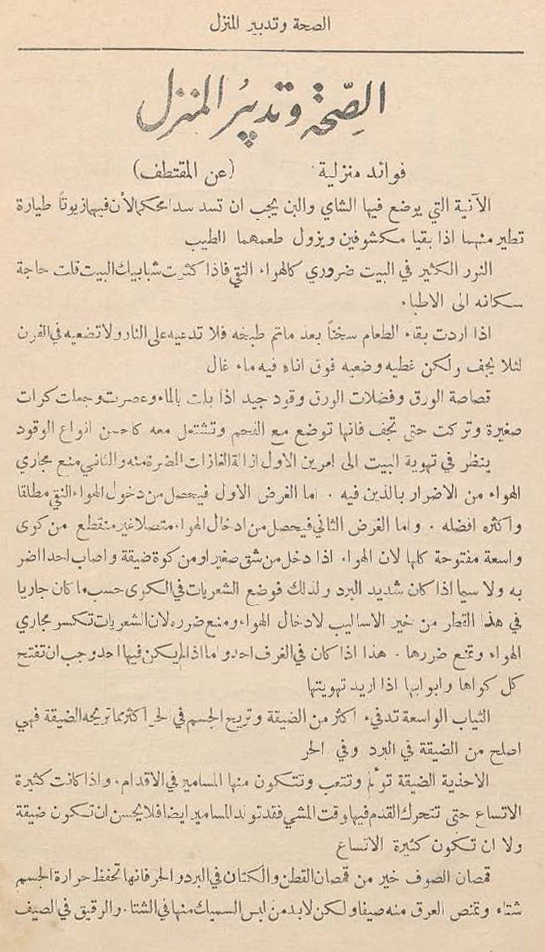 الصحة وتدبير المنزل
الصِّحَّة وتدبيرُ المنزل
فوائد منزلية (عن المقتطف)
الآنية التي يوضع فيها الشاي والبن يجب ان تسد سدا محكما لأن فيها زيوتاً طيارة
تطير منهما اذا بقيا مكشوفين ويزول طعمهما الطيب
النور الكثير في البيت ضروري كالهواء النقي فاذا كثرت شبابيك البيت قلت حاجة
سكانه الى الاطباء
اذا اردت بقاء الطعام سخناً بعد ما تم طبخه فلا تدعيه على النار ولا تضعيه في الفرن
لئلا يجف ولكن غطيه وضعيه فوق اناء فيه ماء غال
قصاصة الورق وفضلات الورق وقود جيد اذا بلت بالماء وعصرت وجعلت كرات
صغيرة وتركت حتى تجف فانها توضع مع الفحم وتشتعل معه كاحسن انواع الوقود
ينظر في تهوية البيت الى امرين الاول ازالة الغازات المضرة منه والثاني منع مجاري
الهواء من الاضرار بالذين فيه . اما الغرض الاول فيحصل من دخول الهواء النقي مطلقا
واكثره افضله . واما الغرض الثاني فيحصل من ادخال الهواء متصلا غير منقطع من كوى
واسعة مفتوحة كلها لان الهواء اذا دخل من شق صغير او من كوة ضيقة واصاب احدا اضر
به ولا سيما اذا كان شديد البرد ولذلك فوضع الشعريات في الكوى حسب ما كان جاريا
في هذا القطر من خير الاساليب لادخال الهواء ومنع ضرره لان الشعريات تكسر مجاري
الهواء وتمنع ضررها . هذا اذا كان في الغرف احد واما اذا لم يكن فيها احد وجب ان تفتح
كل كواها وابوابها اذا اريد تهويتها
الثياب الواسعة تدفيء اكثر من الضيقة وتريح الجسم في الحر اكثر مما تريحه الضيقة فهي
اصلح من الضيقة في البرد وفي الحر
الاحذية الضيقة تؤلم وتتعب وتتكون منها المسامير في الاقدام . واذا كانت كثيرة
الاتساع حتى تتحرك القدم فيها وقت المشي فقد تولد المسامير ايضا فلا يحسن ان تكون ضيقة
ولا ان تكون كثيرة الاتساع
قمصان الصوف خير من قمصان القطن والكتان في البرد والحر فانها تحفظ حرارة الجسم
شتاء وتمتص العرق منه صيفا ولكن لا بد من لبس السميك منها في الشتاء والرقيق في الصيف